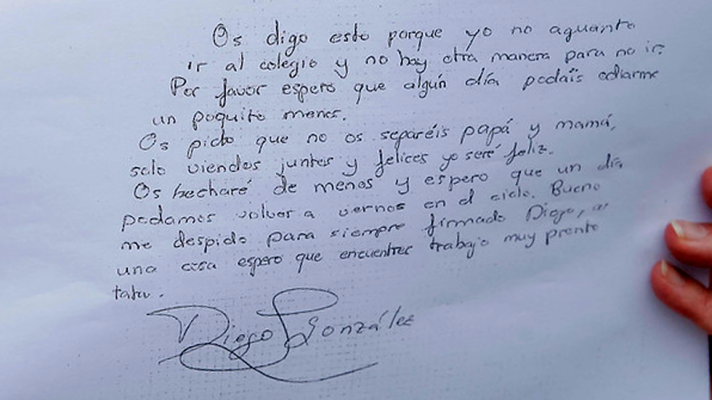 Os digo esto porque yo no aguanto
ir al colegio y no hay otra manera para no ir.
Por favor espero que algún día podaís odiarme
un poquito menos.
Os pido que no os separéis papá y mamá,
solo viendos juntos y felices yo seré feliz.
Os hecharé de menos y espero que un día
podamos volver a vernos en el cielo. Bueno
me despido para siempre firmado Diego, a,
una cosa espero que encuentres trabajo muy pronto
tata.
Diego González